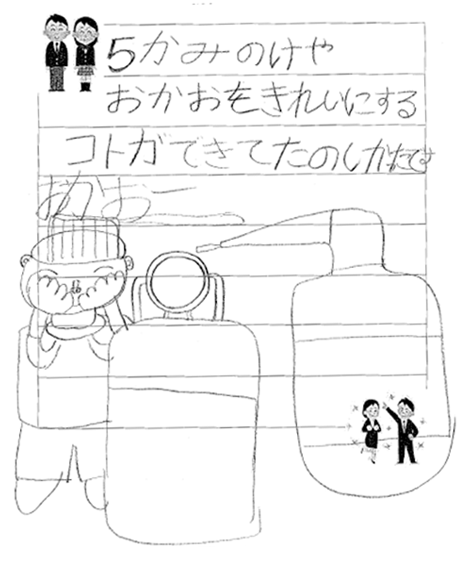 5かみのけや
おかおをきれいにする
コトができてたのしかたです
おかおー